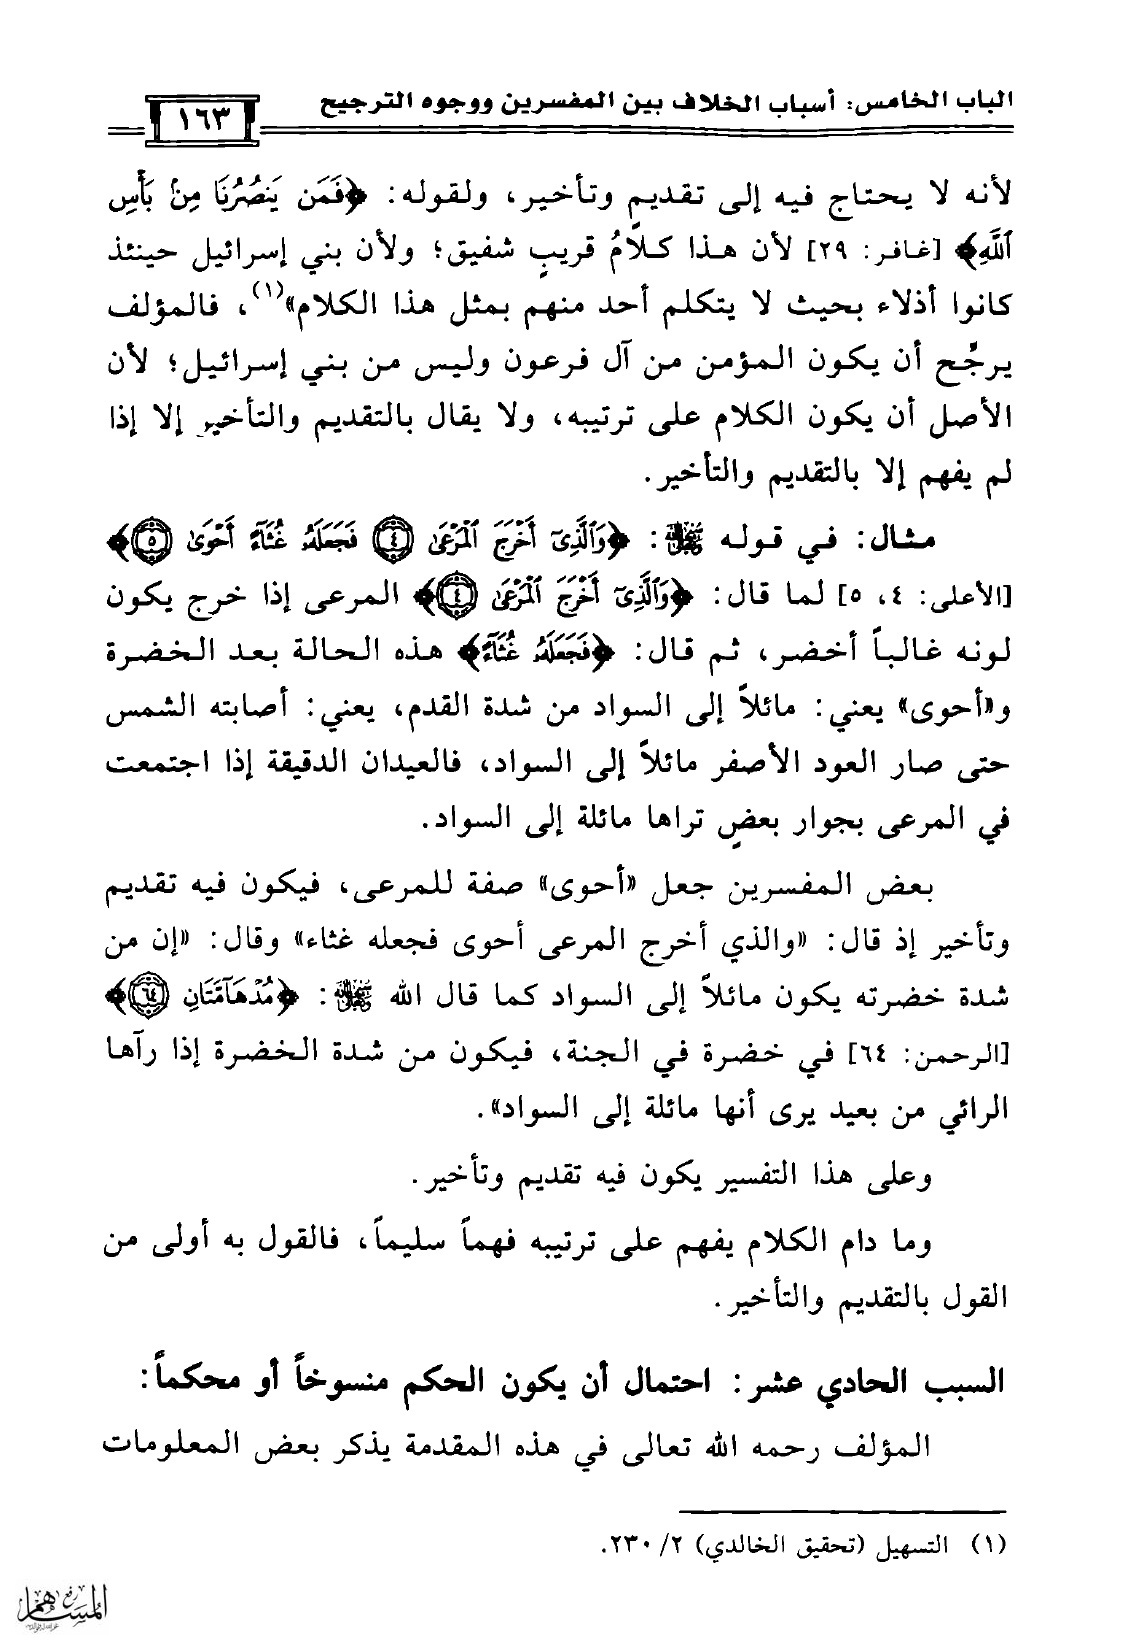 الباب الخامس: أسباب الخلاف بين المفسرين ووجوه الترجيح
١٦٣
لأنه لا يحتاج فيه إلى تقديمٍ وتأخير، ولقوله: ﴿فَمَن يَنصُرُنَا مِنۢ بَأْسِ
ٱللَّهِ﴾ [غافر: ٢٩] لأن هذا كلامُ قريبٍ شفيق؛ ولأن بني إسرائيل حينئذ
كانوا أذلاء بحيث لا يتكلم أحد منهم بمثل هذا الكلام»(١)، فالمؤلف
يرجِّح أن يكون المؤمن من آل فرعون وليس من بني إسرائيل؛ لأن
الأصل أن يكون الكلام على ترتيبه، ولا يقال بالتقديم والتأخير إلا إذا
لم يفهم إلا بالتقديم والتأخير.
مثال: في قوله ﷻ: ﴿وَٱلَّذِىٓ أَخْرَجَ ٱلْمَرْعَىٰ ۝٤ فَجَعَلَهُۥ غُثَآءً أَحْوَىٰ ۝٥﴾
[الأعلى: ٤، ٥] لما قال: ﴿وَٱلَّذِىٓ أَخْرَجَ ٱلْمَرْعَىٰ ۝٤﴾ المرعى إذا خرج يكون
لونه غالباً أخضر، ثم قال: ﴿فَجَعَلَهُۥ غُثَآءً﴾ هذه الحالة بعد الخضرة
و«أحوى» يعني: مائلاً إلى السواد من شدة القدم، يعني: أصابته الشمس
حتى صار العود الأصفر مائلاً إلى السواد، فالعيدان الدقيقة إذا اجتمعت
في المرعى بجوار بعضٍ تراها مائلة إلى السواد.
بعض المفسرين جعل «أحوى» صفة للمرعى، فيكون فيه تقديم
وتأخير إذ قال: «والذي أخرج المرعى أحوى فجعله غثاء» وقال: «إن من
شدة خضرته يكون مائلاً إلى السواد كما قال الله ﷻ: ﴿مُدْهَآمَّتَانِ ۝٦٤﴾
[الرحمن: ٦٤] في خضرة في الجنة، فيكون من شدة الخضرة إذا رآها
الرائي من بعيد يرى أنها مائلة إلى السواد».
وعلى هذا التفسير يكون فيه تقديم وتأخير.
وما دام الكلام يفهم على ترتيبه فهماً سليماً، فالقول به أولى من
القول بالتقديم والتأخير.
السبب الحادي عشر: احتمال أن يكون الحكم منسوخاً أو محكماً:
المؤلف رحمه الله تعالى في هذه المقدمة يذكر بعض المعلومات
(١) التسهيل (تحقيق الخالدي) ٢/ ٢٣٠.